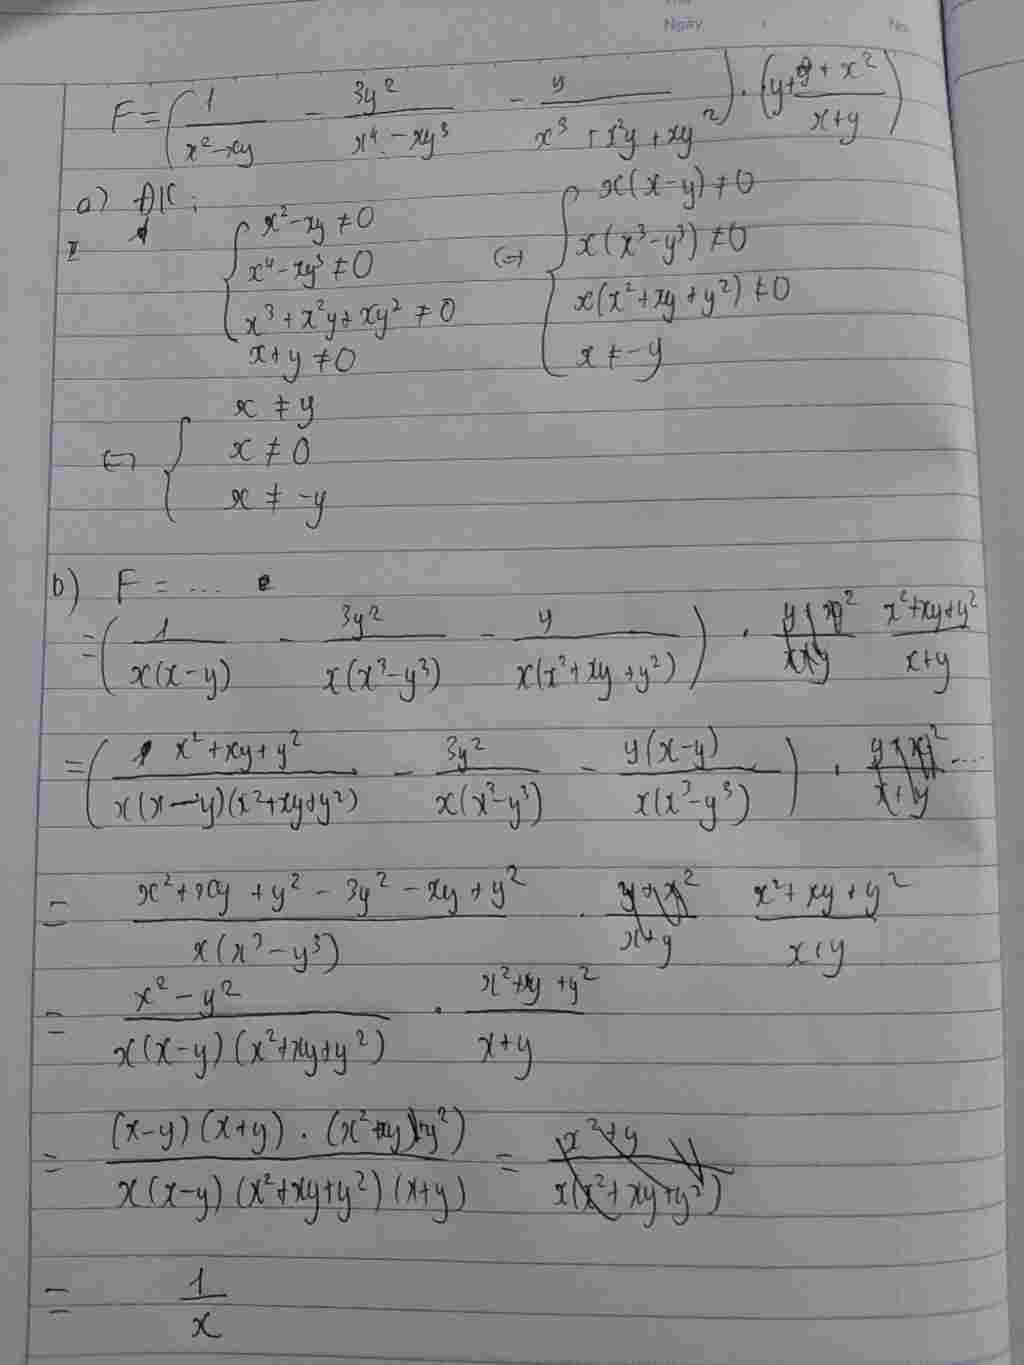 Ngày No.
F = (1/(x²-xy) - 3y²/(x⁴-xy³) - y/(x³+x²y+xy²)) · (y + (y+x²)/(x+y))
a) ĐK:
{ x²-xy ≠ 0 ⇔ { x(x-y) ≠ 0
x⁴-xy³ ≠ 0 x(x³-y³) ≠ 0
x³+x²y+xy² ≠ 0 x(x²+xy+y²) ≠ 0
x+y ≠ 0 x ≠ -y
⇔ { x ≠ y
x ≠ 0
x ≠ -y
b) F = ...
= (1/(x(x-y)) - 3y²/(x(x³-y³)) - y/(x(x²+xy+y²))) · (x²+xy+y²)/(x+y)
= ((x²+xy+y²)/(x(x-y)(x²+xy+y²)) - 3y²/(x(x³-y³)) - y(x-y)/(x(x³-y³))) · ....
= (x²+xy+y²-3y²-xy+y²)/(x(x³-y³)) · (x²+xy+y²)/(x+y)
= (x²-y²)/(x(x-y)(x²+xy+y²)) · (x²+xy+y²)/(x+y)
= ((x-y)(x+y)·(x²+xy+y²))/(x(x-y)(x²+xy+y²)(x+y)) =
= 1/x